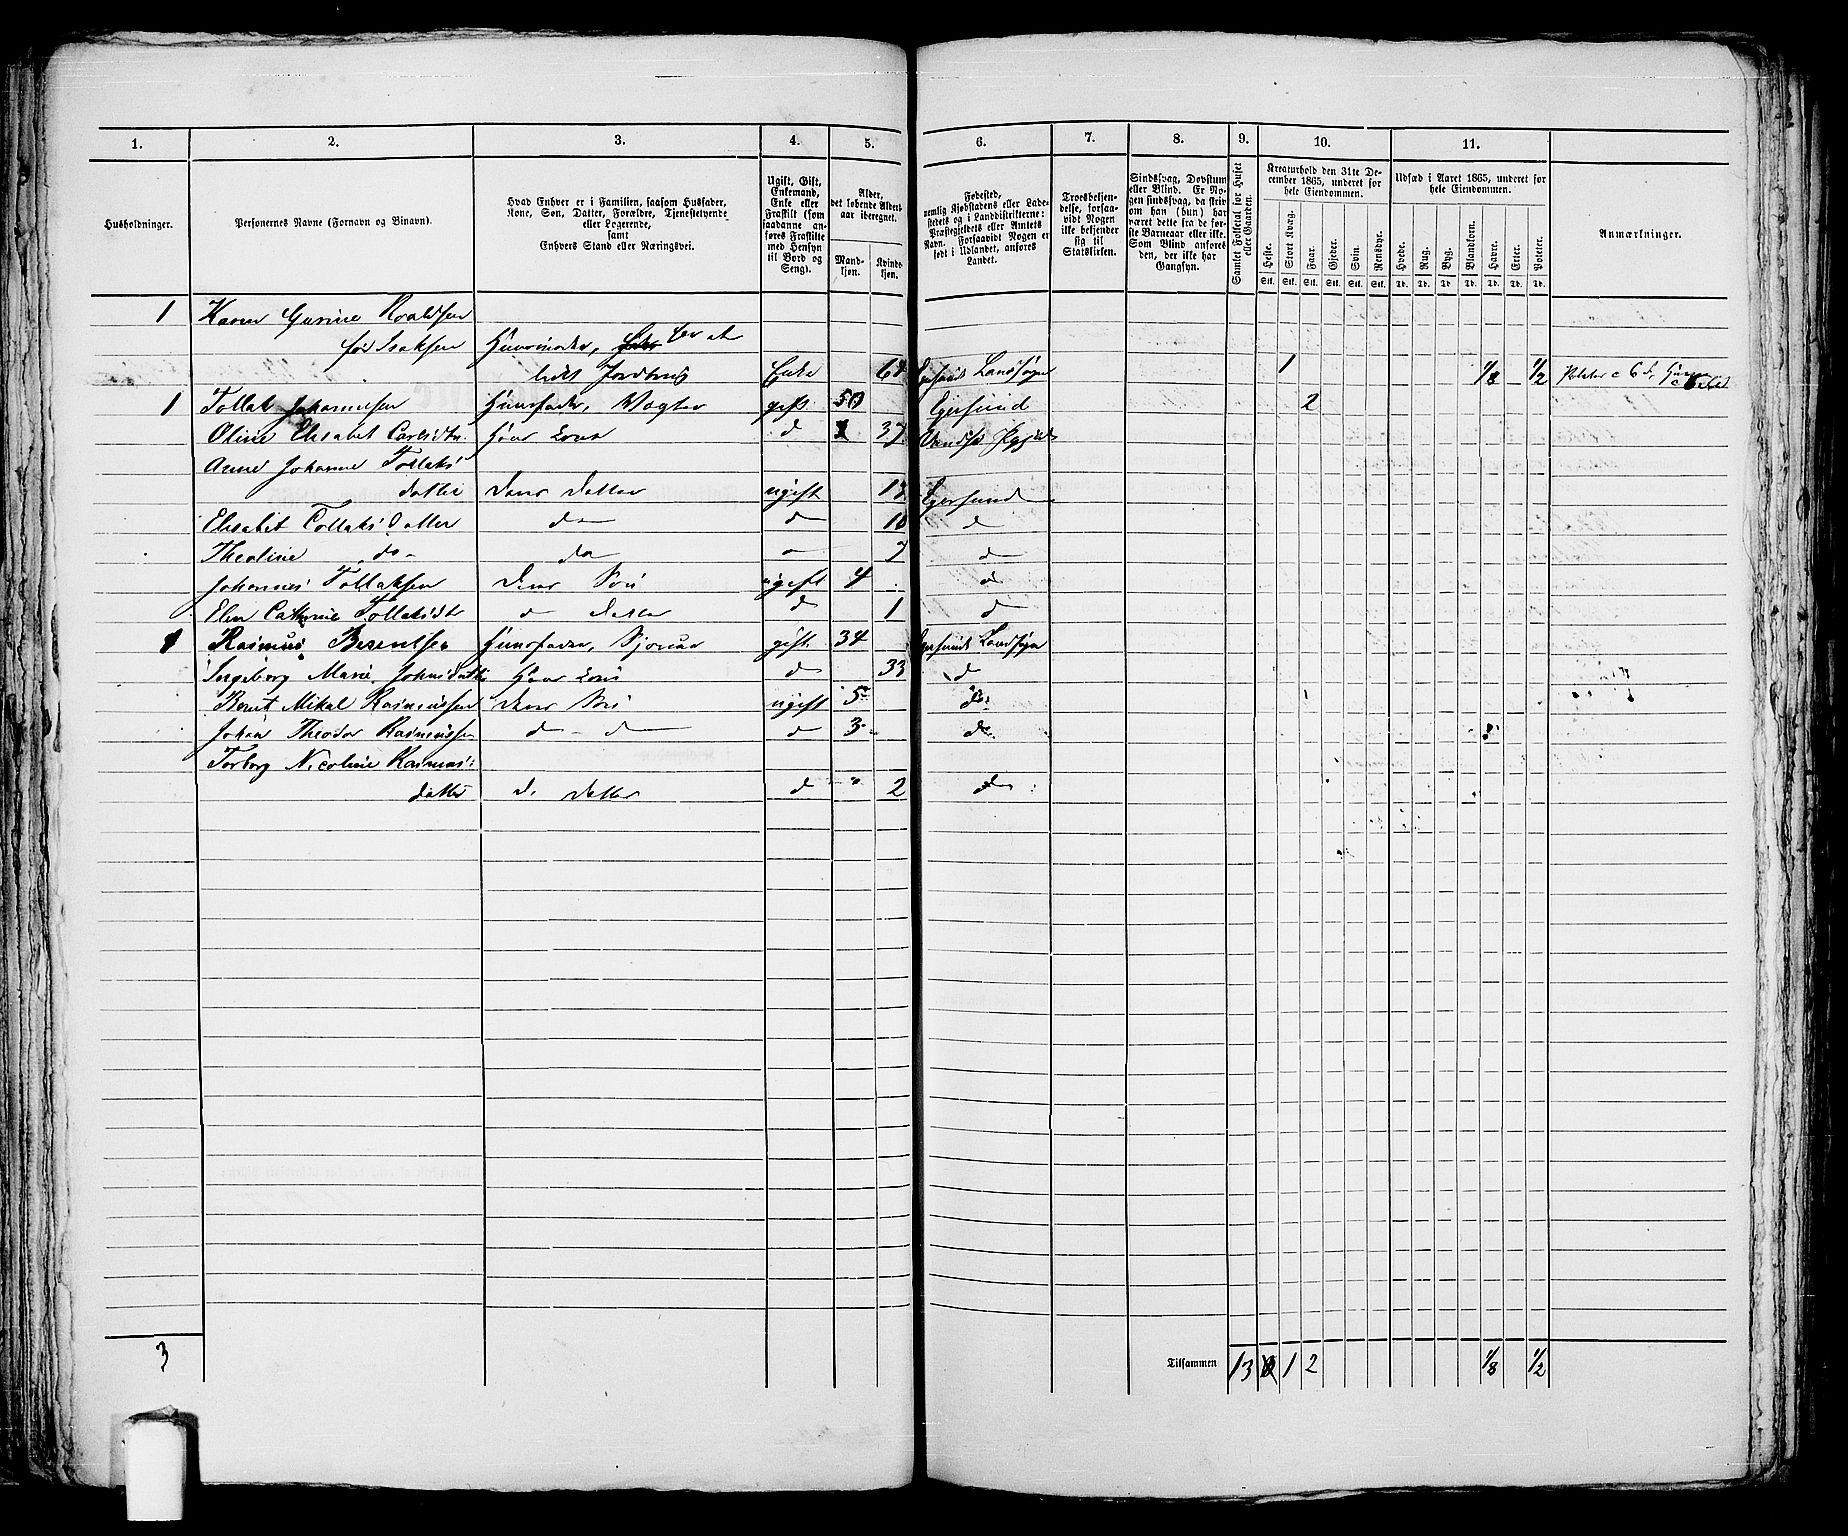 1. 2. 3. 4. 5. 6. 7. 8. 9. 10. 11.
Husholdninger.
Personernes Navne (Fornavn og Binavn).
Hvad Enhver er i Familien, saasom Husfader,
Kone, Søn, Datter, Forældre, Tjenestetyende
eller Logerende,
samt
Enhvers Stand eller Næringsvei.
Ugift, Gift,
Enkemand,
Enke eller
Fraskilt (som
saadanne an-
føres Fraskilte
med Hensyn
til Bord og
Seng).
Alder,
det løbende Alders-
aar iberegnet.
Mand-
kjøn.
Kvinde-
kjøn.
Fødested,
nemlig Kjøbstadens eller Lade-
stedets og i Landdistrikterne:
Præstegjeldets eller Amtets
Navn. Forsaavidt Nogen er
født i Udlandet, anføres
Landet.
Troesbekjen-
delse, forsaa-
vidt Nogen
ikke bekjender
sig til
Statskirken.
Sindssvag, Døvstum
eller Blind. Er No-
gen sindssvag, da skriv
om han (hun) har
været dette fra de før-
ste Barneaar eller ikke.
Som Blind anføres
den, der ikke har
Gangsyn.
Samlet Folketal for Huset
eller Gaarden.
Kreaturhold den 31te De-
cember 1865, underet for
hele Eiendommen.
Heste. Stort Kvæg. Faar. Gjeder. Svin. Rensdyr.
Stk. Stk. Stk. Stk. Stk. Stk.
Udsæd i Aaret 1865, underet for
hele Eiendommen.
Hvede. Rug. Byg. Blandkorn. Havre. Erter. Poteter.
Td. Td. Td. Td. Td. Td. Td.
Anmærkninger.
1 Karen Gurine Roaldsen
før Isaksen Huusmoder, Lev at
lidt Jordbrug Enke 64 Egersunds Landsogn 1 1/8 1/2
1 Tollak Johannesen Huusfader, Vogter gift 50 Egersund 2
Oline Elisabet Carlsdtr. Hans Kone d 37
Anne Johanne Tollaks
datter Deres Datter ugift 13 Egersund
Elisabet Tollaksdatter do d 10 d
Theoline do do 7 d
Johannes Tollaksen Deres Søn ugift 4 d
Elen Cathrine Tollaksdt d Datter d 1 d
1 Rasmus Berentsen Huusfader, Sjømand gift 34 Egersunds Landsogn
Ingeborg Marie Johnsdatter Hans Kone d 33 d
Berent Mikal Rasmussen Deres Søn ugift 5 do
Johan Theodor Rasmussen d d d 3 do
Torborg Nicoline Rasmus:
datter D. Datter d " 2 do
3 Tilsammen 13 1 2 1/8 1/2